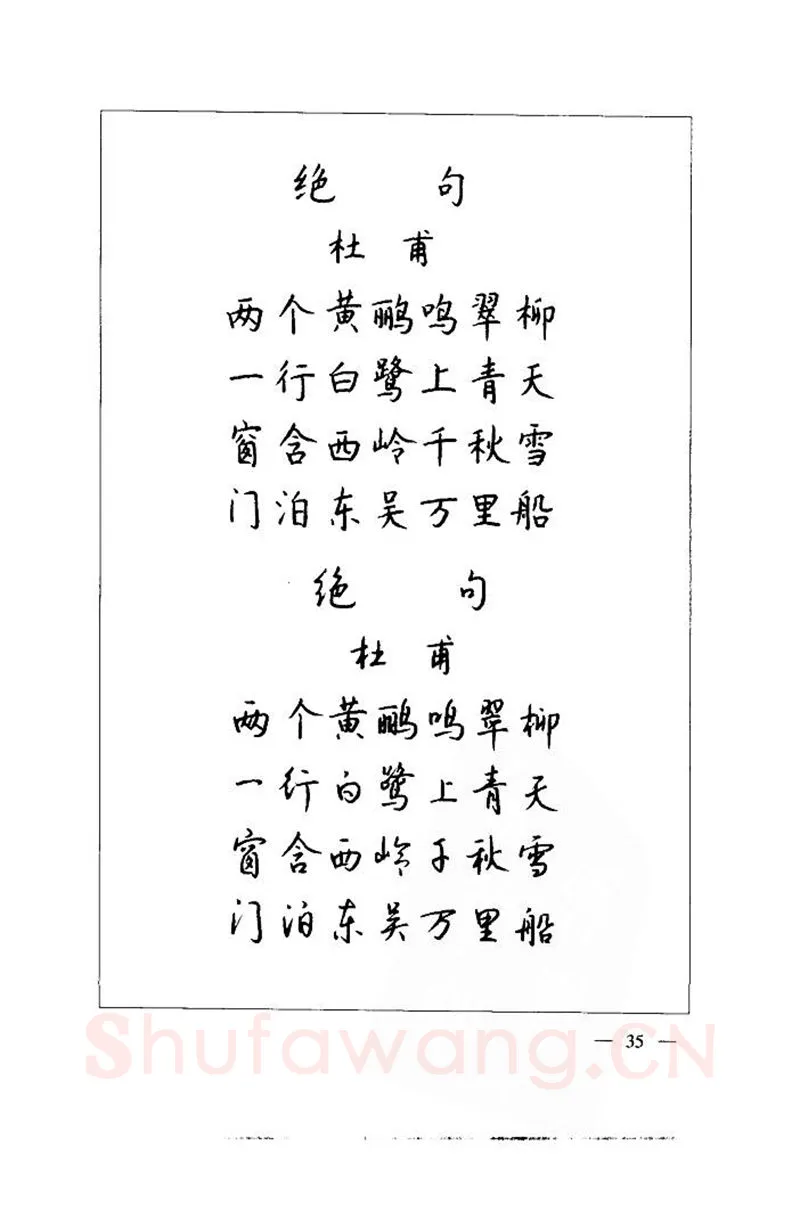 绝 句
杜 甫
两个黄鹂鸣翠柳
一行白鹭上青天
窗含西岭千秋雪
门泊东吴万里船
绝 句
杜 甫
两个黄鹂鸣翠柳
一行白鹭上青天
窗含西岭千秋雪
门泊东吴万里船
— 35 —
Shufawang.CN